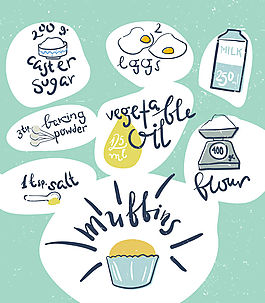 200 g.
caster
sugar
2
eggs
MILK
250 ml
3 tsp
baking
powder
vegetable
oil
125
ml
400
g.
flour
1 tsp. salt
muffins